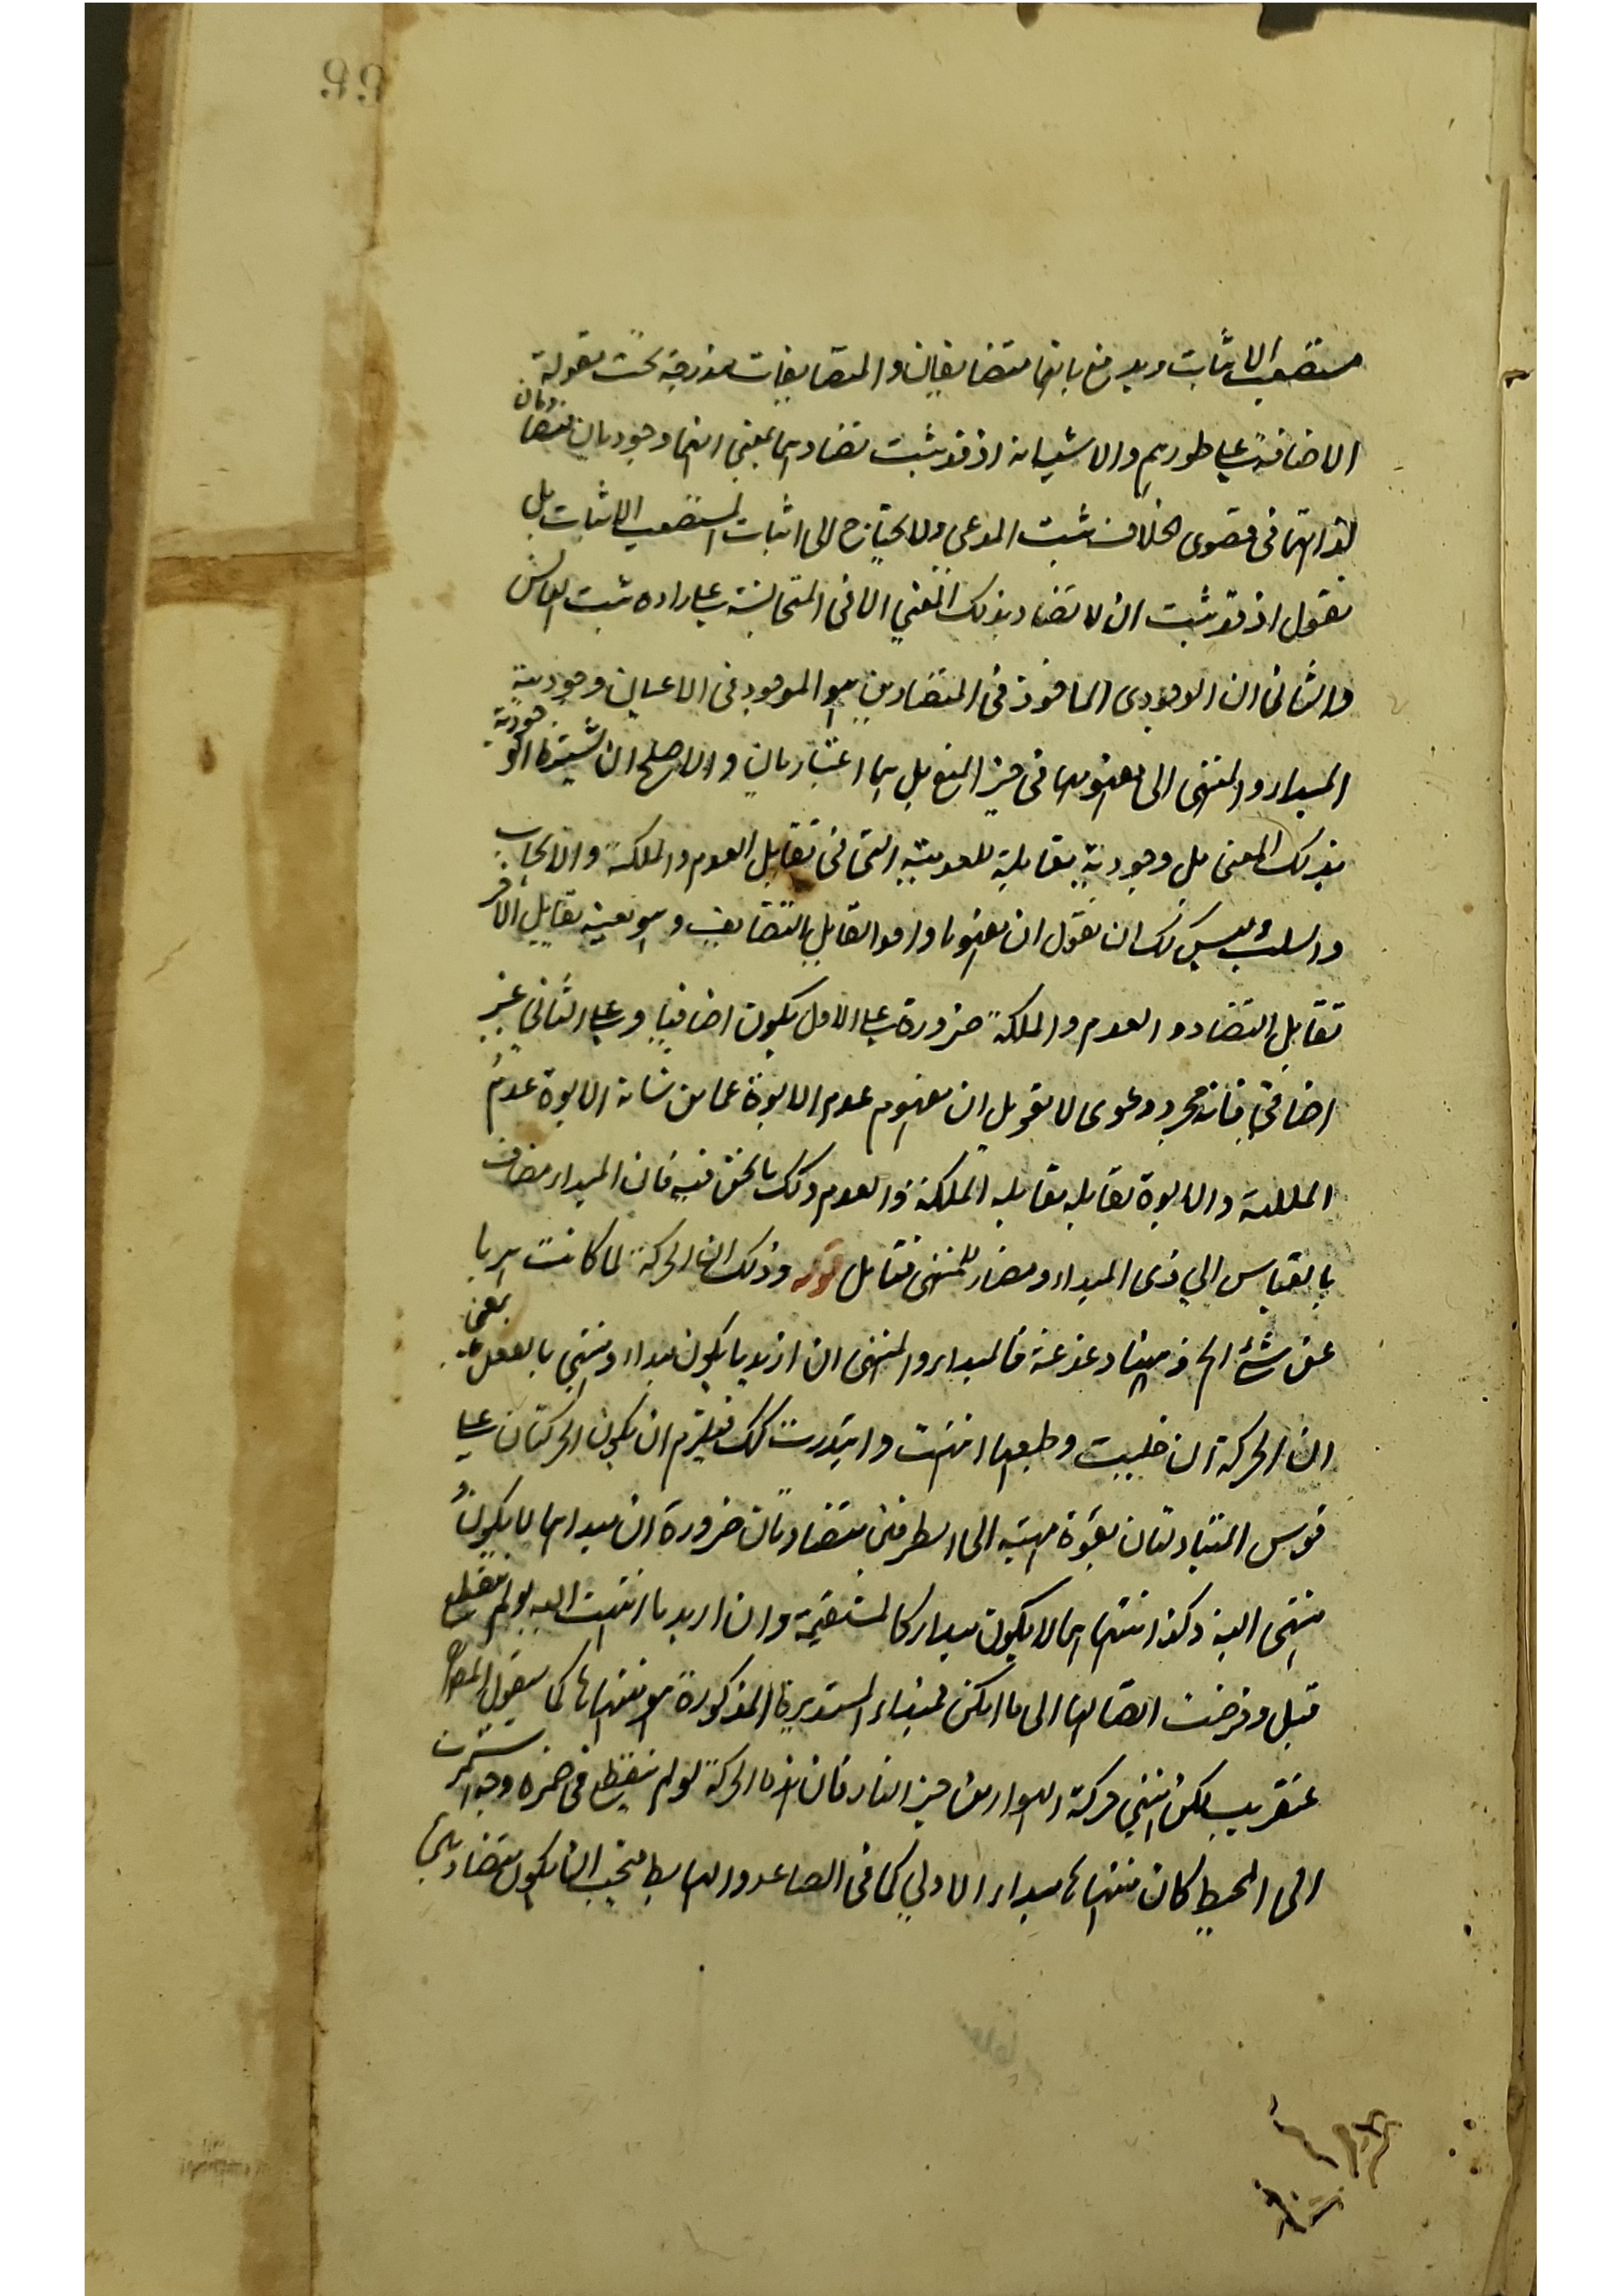 99
مستصعب الاثبات ويدفع بانهما متضايفان والمتضايفات مندرجة تحت مقولة
الاضافة على طورهم والاشياء اذ قد ثبت تضادهما بمعنى انهما وجوديان متضادان
لذاتهما فى قصوى الخلاف ثبت المدعى ولا يحتاج الى اثبات المستصعب الاثبات بل
نقول اذ قد ثبت ان لا تضاد بذلك المعنى الا فى المتجانسة على اراده ثبت
والثانى ان الوجودى الماخوذ فى المتضادين هو الموجود فى الاعيان ووجودية
المبدا والمنتهى الى مفهومهما فى حيز المنع بل هما اعتباريان والاصلح ان
بذلك المعنى بل وجودية مقابلة للعدمية التى فى تقابل العدم والملكة والايجاب
والسلب ليس لك ان تقول ان مفهوما واحدا تقابل بالتضايف وهو بعينه يقابل الاخر
تقابل التضاد والعدم والملكة ضرورة على الاول يكون اضافيا وعلى الثانى غير
اضافى فانه مجرد دعوى لا نقول ان مفهوم عدم الابوة عما من شانه الابوة عدم
الملكة والابوة تقابله مقابلة الملكة والعدم وكك ما نحن فيه فان المبدا مضاف
بالقياس الى ذى المبدا ومضاد للمنتهى فتامل قوله وذلك ان الحركة لما كانت
عن شئ الخ فيهنا دغدغة فالمبدا والمنتهى ان اريد ما يكون مبدا ومنتهى بالفعل بمعنى
ان الحركة ان خليت وطبعها انتهت وابتدرت كك فيلزم ان يكون الحركتان على
قوس المتبادلتان بقوة الى الطرفين متضادتان ضرورة ان مبداهما لا يكون
منتهى البتة وكذا منتهاهما لا يكون مبدا كالمستقيمة وان اريد ما انتهيت اليه لو لم ينقطع
قبل وفرضت اتصالها الى ما امكن فمبدا المستديرة المذكورة هو منتهاها كما سيقول المص
عنقريب لكن منتهى حركة الهواء من حيز النار فان هذه الحركة لو لم ينقطع فى واستمرت
الى المحيط كان منتهاها مبدا الاولى كما فى الصاعد والهابط فيجب ان يكون متضادين